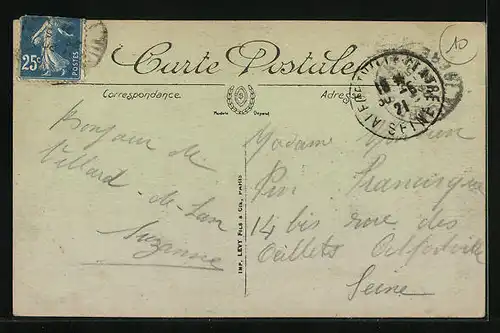 25c
POSTES
10
Carte Postale
Correspondance.
Adresse
Modèle Déposé
ALFORTVILLE
21
Bonjour de
Villard-de-Lans
Suzanne
IMP. LEVY FILS & Cie, PARIS
Madame
Pin Francisque
14 bis rue des
Oeillets Alfortville
Seine